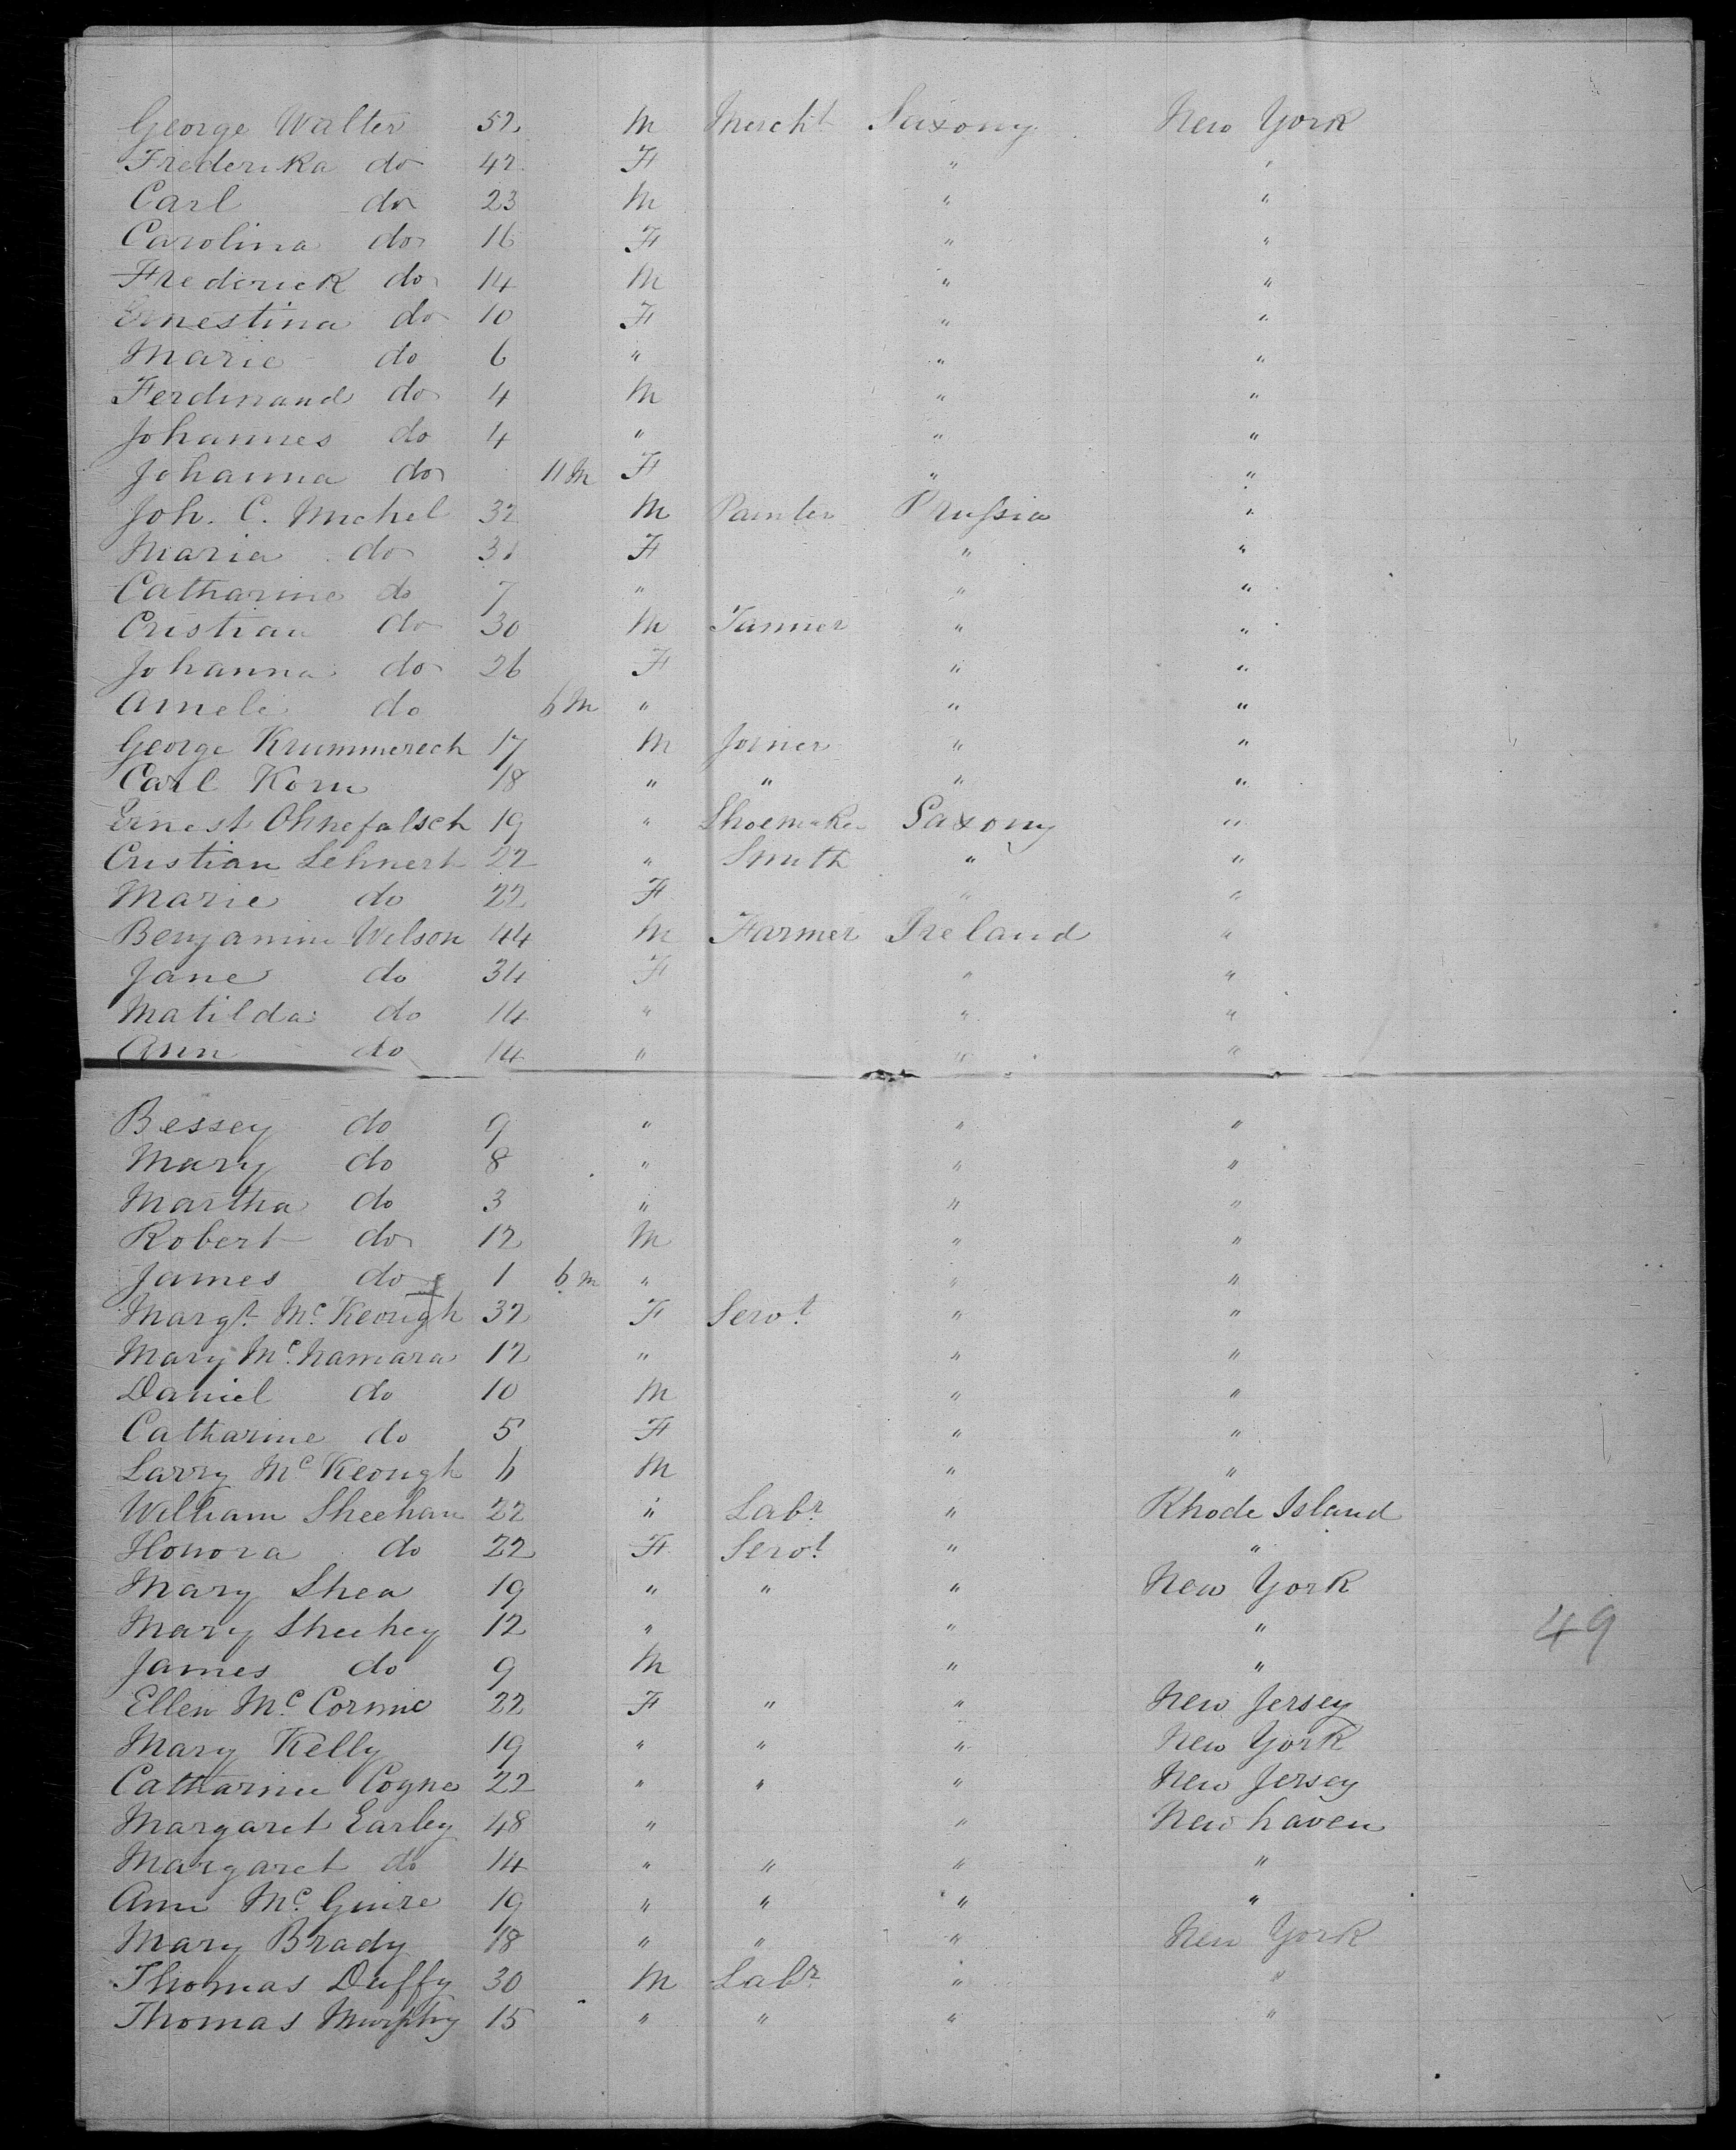 George Walter 52 M Mercht Saxony New York
Frederika do 42 F " "
Carl do 23 M " "
Carolina do 16 F " "
Frederick do 14 M " "
Ernestina do 10 F " "
Marie do 6 " " "
Ferdinand do 4 M " "
Johannes do 4 " " "
Johanna do 11 M F " "
Joh. C. Michel 32 M Painter Prussia "
Maria do 31 F " "
Catharine do 7 " " "
Cristian do 30 M Tanner " "
Johanna do 26 F " "
Ameli do 6 M " " "
George Krummerech 17 M Joiner " "
Carl Korn 18 " " " "
Ernest Ohnefalsch 19 " Shoemaker Saxony "
Cristian Lehnert 22 " Smith " "
Marie do 22 F " "
Benjamin Wilson 44 M Farmer Ireland "
Jane do 34 F " "
Matilda do 14 " " "
Ann do 14 " " "
Bessey do 9 " " "
Mary do 8 " " "
Martha do 3 " " "
Robert do 12 M " "
James do 1 6 m " " "
Margt. Mc Keough 32 F Servt. " "
Mary Mc.Namara 12 " " "
Daniel do 10 M " "
Catharine do 5 F " "
Larry Mc Keough 6 M " "
William Sheehan 22 " Labr. " Rhode Island
Honora do 22 F Servt. " "
Mary Shea 19 " " " New York
Mary Sheehey 12 " " "
James do 9 M " "
49
Ellen Mc. Cormic 22 F " " New Jersey
Mary Kelly 19 " " " New York
Catharine Coyne 22 " " " New Jersey
Margaret Earley 48 " " New haven
Margaret do 14 " " " "
Ann Mc. Guire 19 " " " "
Mary Brady 18 " " " New York
Thomas Duffy 30 M Labr. " "
Thomas Murphy 15 " " " "